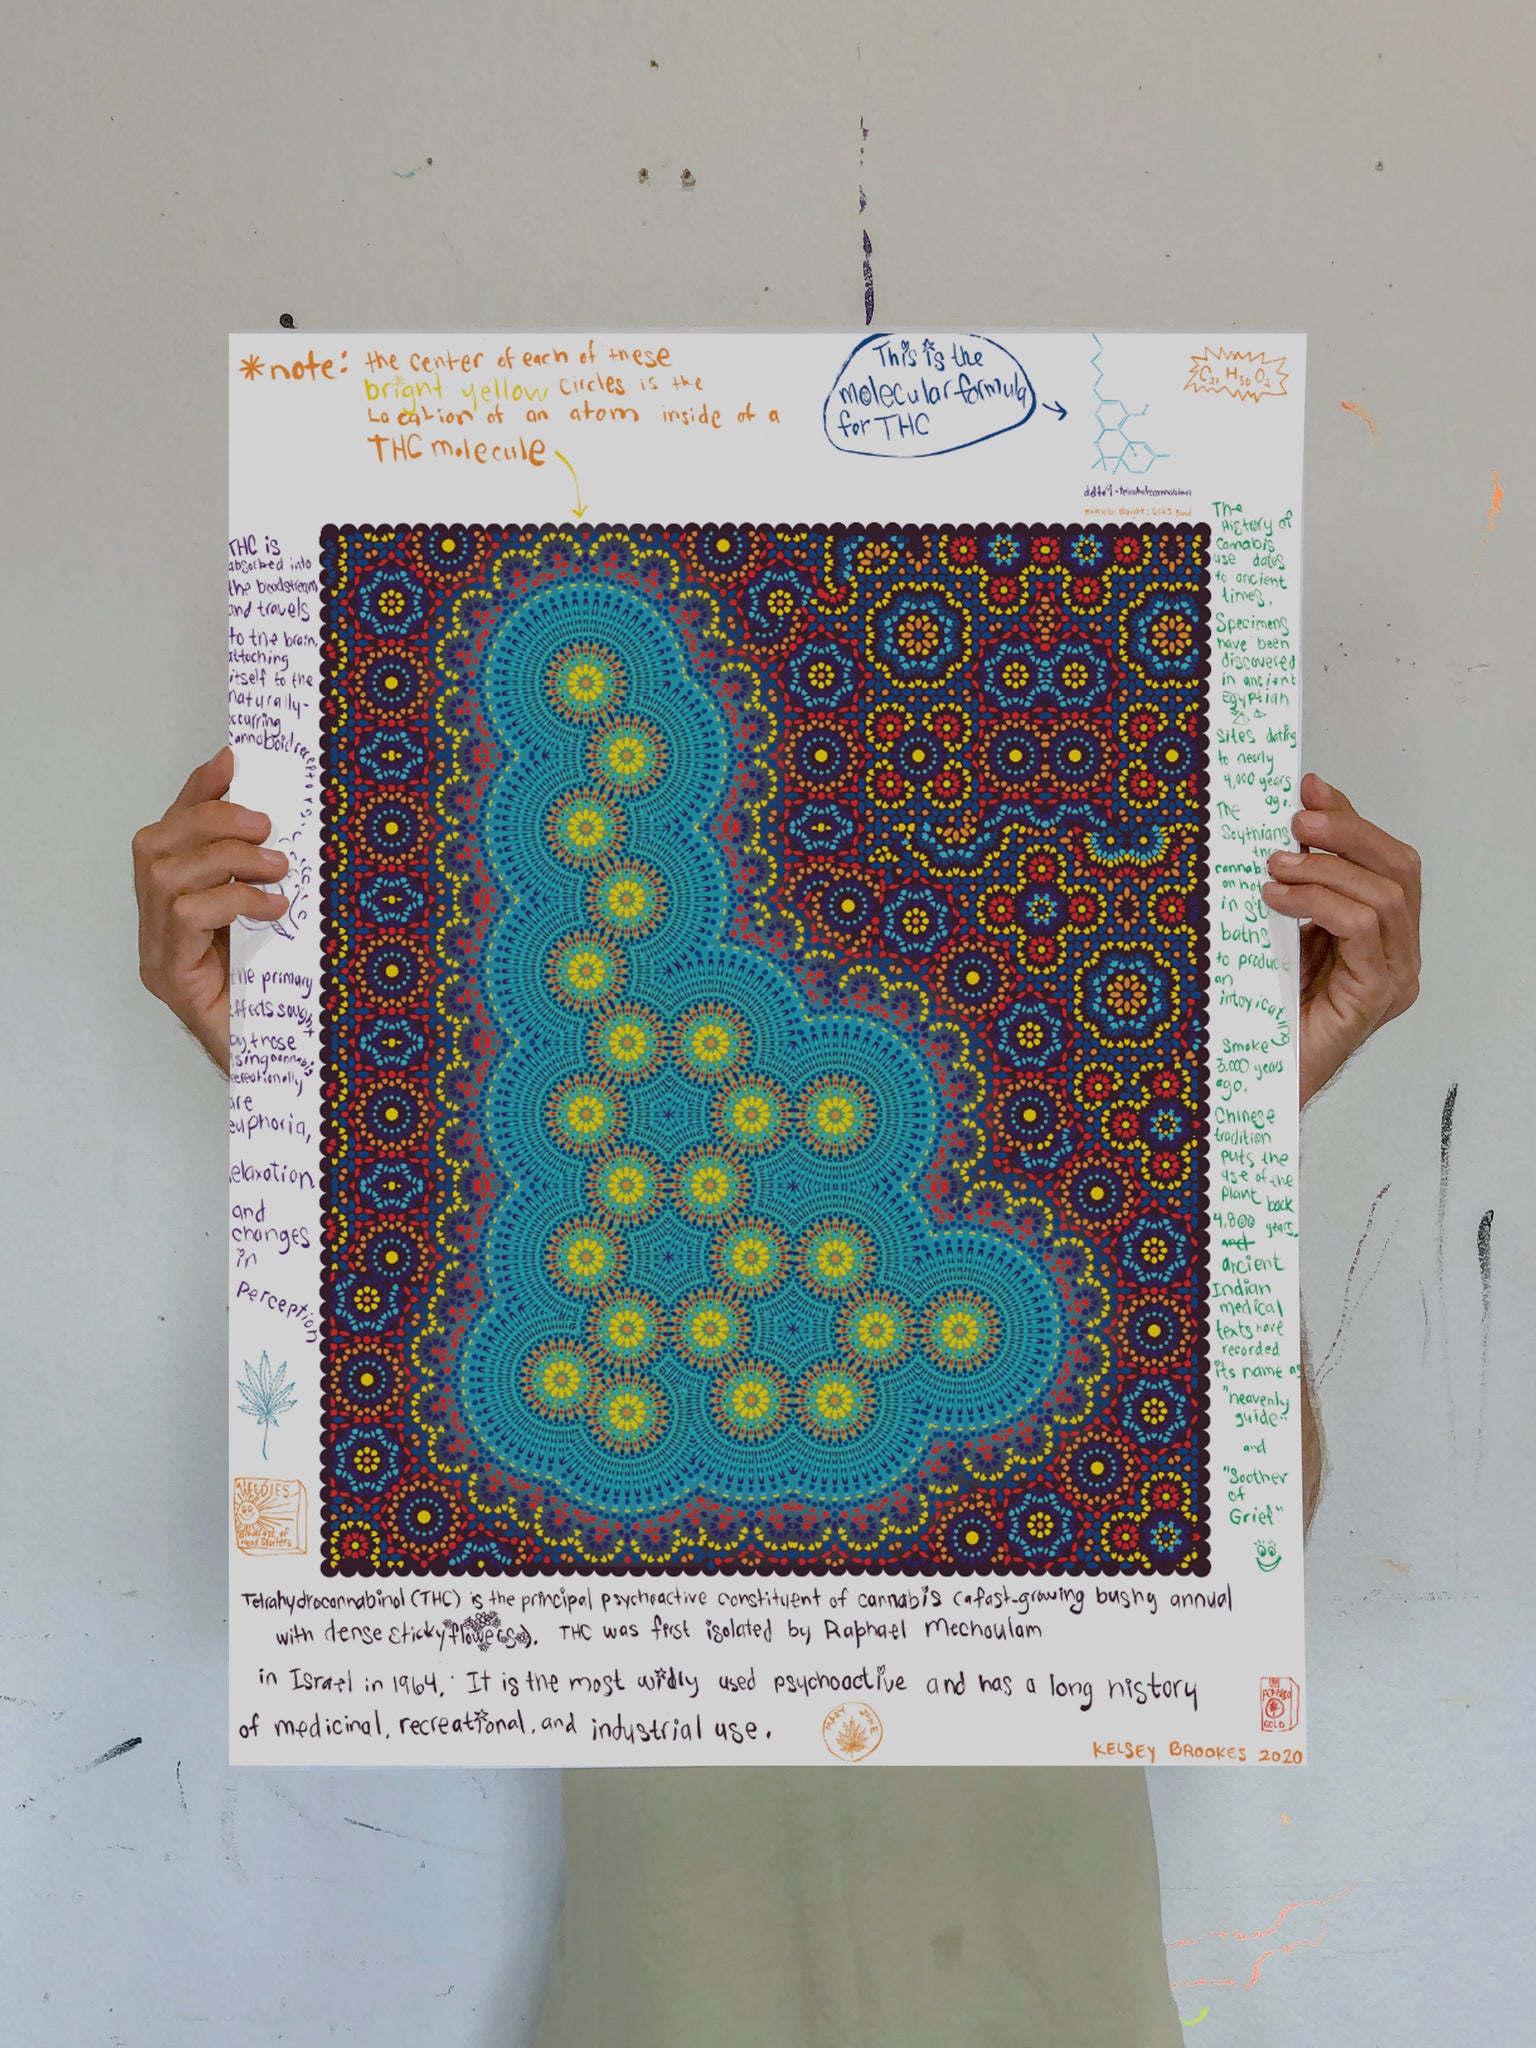 *note: the center of each of these
bright yellow circles is the
Location of an atom inside of a
THC molecule
This is the
molecular formula
for THC
C21 H30 O2
delta9-tetrahydrocannabinol
THC is
absorbed into
the bloodstream
and travels
to the brain,
attaching
itself to the
naturally-
occurring
cannaboid receptors.
the primary
effects sought
by those
using cannabis
recreationally
are
euphoria,
relaxation
and
changes
in
perception
NEEDIES
Breakfast of
Head Starters
The
History of
Cannabis
use dates
to ancient
times.
Specimens
have been
discovered
in ancient
Egyptian
sites dating
to nearly
4,000 years
ago.
The
Scythians
cannab
on hot
in
baths
to produce
an
intoxicating
Smoke
3,000 years
ago.
Chinese
tradition
puts the
use of the
plant back
4,800 years.
and
ancient
Indian
medical
texts have
recorded
its name as
"heavenly
guide"
and
"Soother
of
Grief"
Tetrahydrocannabinol (THC) is the principal psychoactive constituent of cannabis (a fast-growing bushy annual
with dense sticky flowers). THC was first isolated by Raphael Mechoulam
in Israel in 1964. It is the most widly used psychoactive and has a long history
of medicinal, recreational, and industrial use.
MARY JANE
GOLD
KELSEY BROOKES 2020